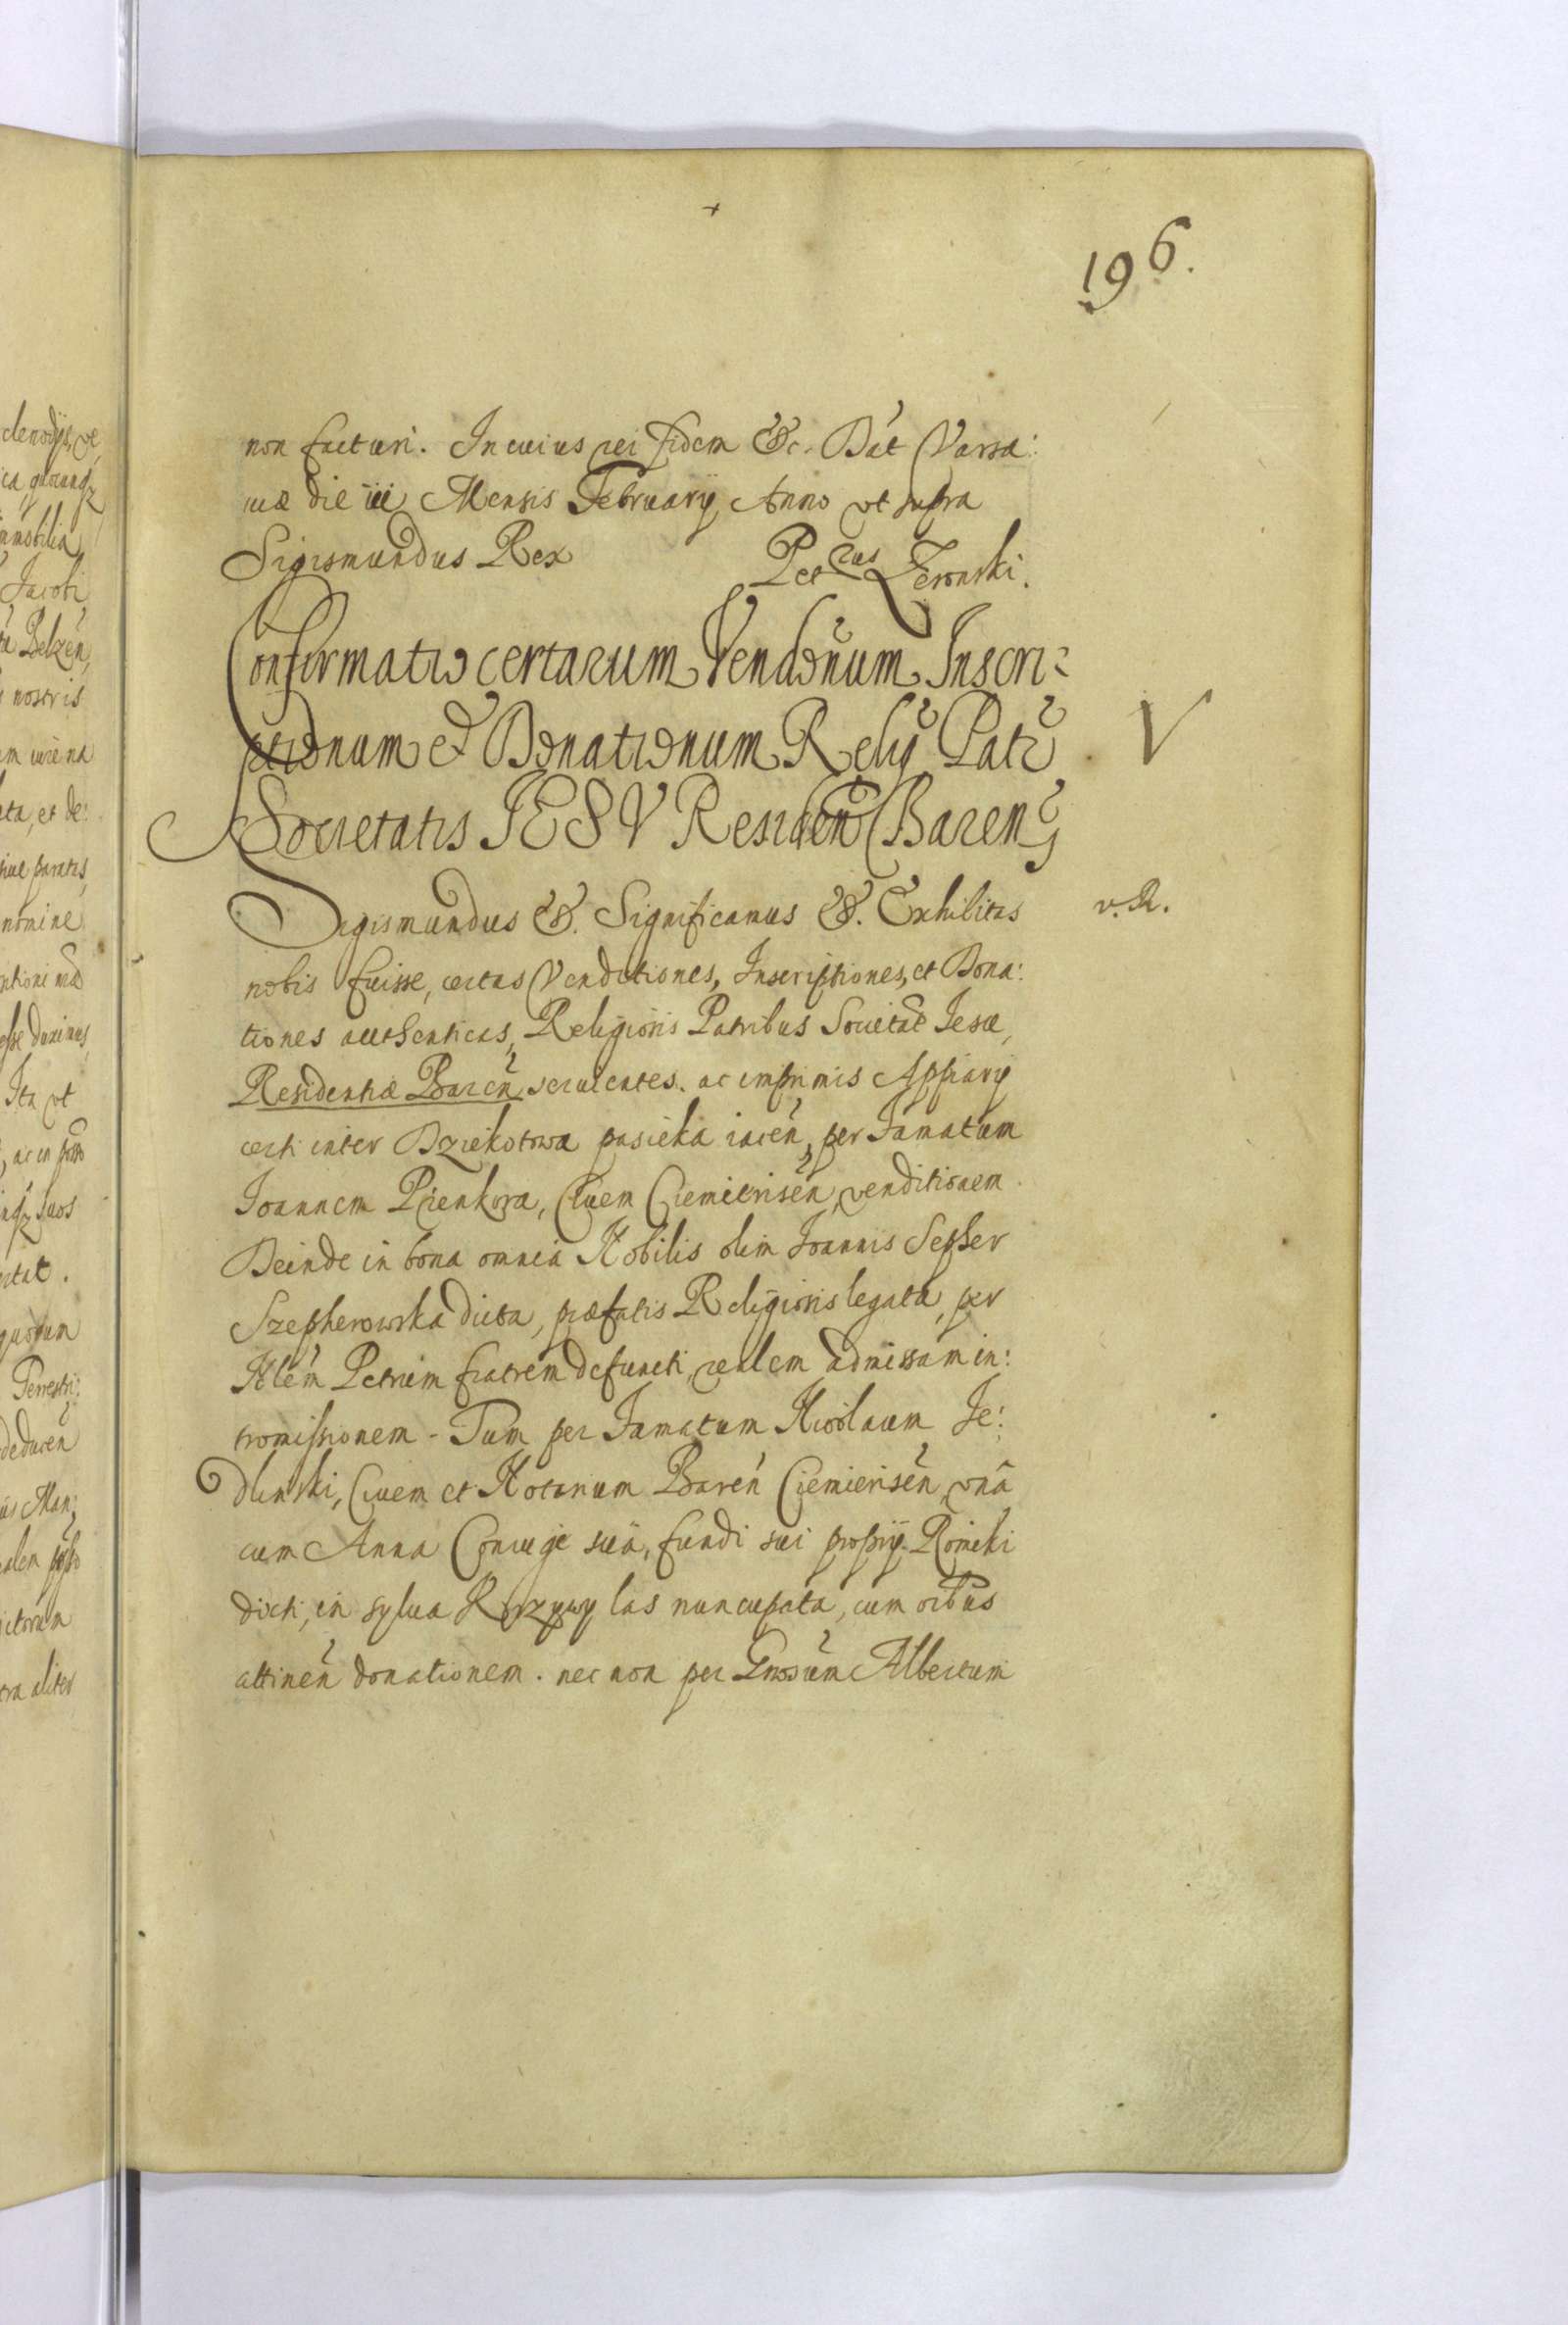 196.
non facturi. In cuius rei fidem &c. Dat Varsa:
uiæ die iii Mensis February Anno vt supra
Sigismundus Rex Petrus Zeronski.
Confirmatio certarum Vendonum Inscri:
ptionum et Donationum Relig Patr V
Societatis IESV Residen Baren
Sigismundus &. Significamus &. Exhibitas v. R.
nobis fuisse, certas Venditiones, Inscriptiones, et Dona:
tiones authenticas, Religiosis Patribus Societat Iesu,
Residentiæ Baren seruientes. ac imprimis Appiary
certi inter Dziekotowa pasieka iacen, per Famatum
Joannem Pienkora, Ciuem Ciemierisen venditionem.
Deinde in bona omnia Nobilis olim Joannis Sepher
Szepherowska dicta, præfatis Religiosis legata, per
Nlem Petrum fratrem defuncti, realem admissam in:
tromissionem. Tum per Famatum Nicolaum Je:
dlinski, Ciuem et Notarium Baren Ciemierisen vnâ
cum Anna Coniuge suâ, fundi sui proprij Romeki
dicti, in sylua Krzywy las nuncupata, cum oibus
attinen donationem. nec non per Gnosum Albertum